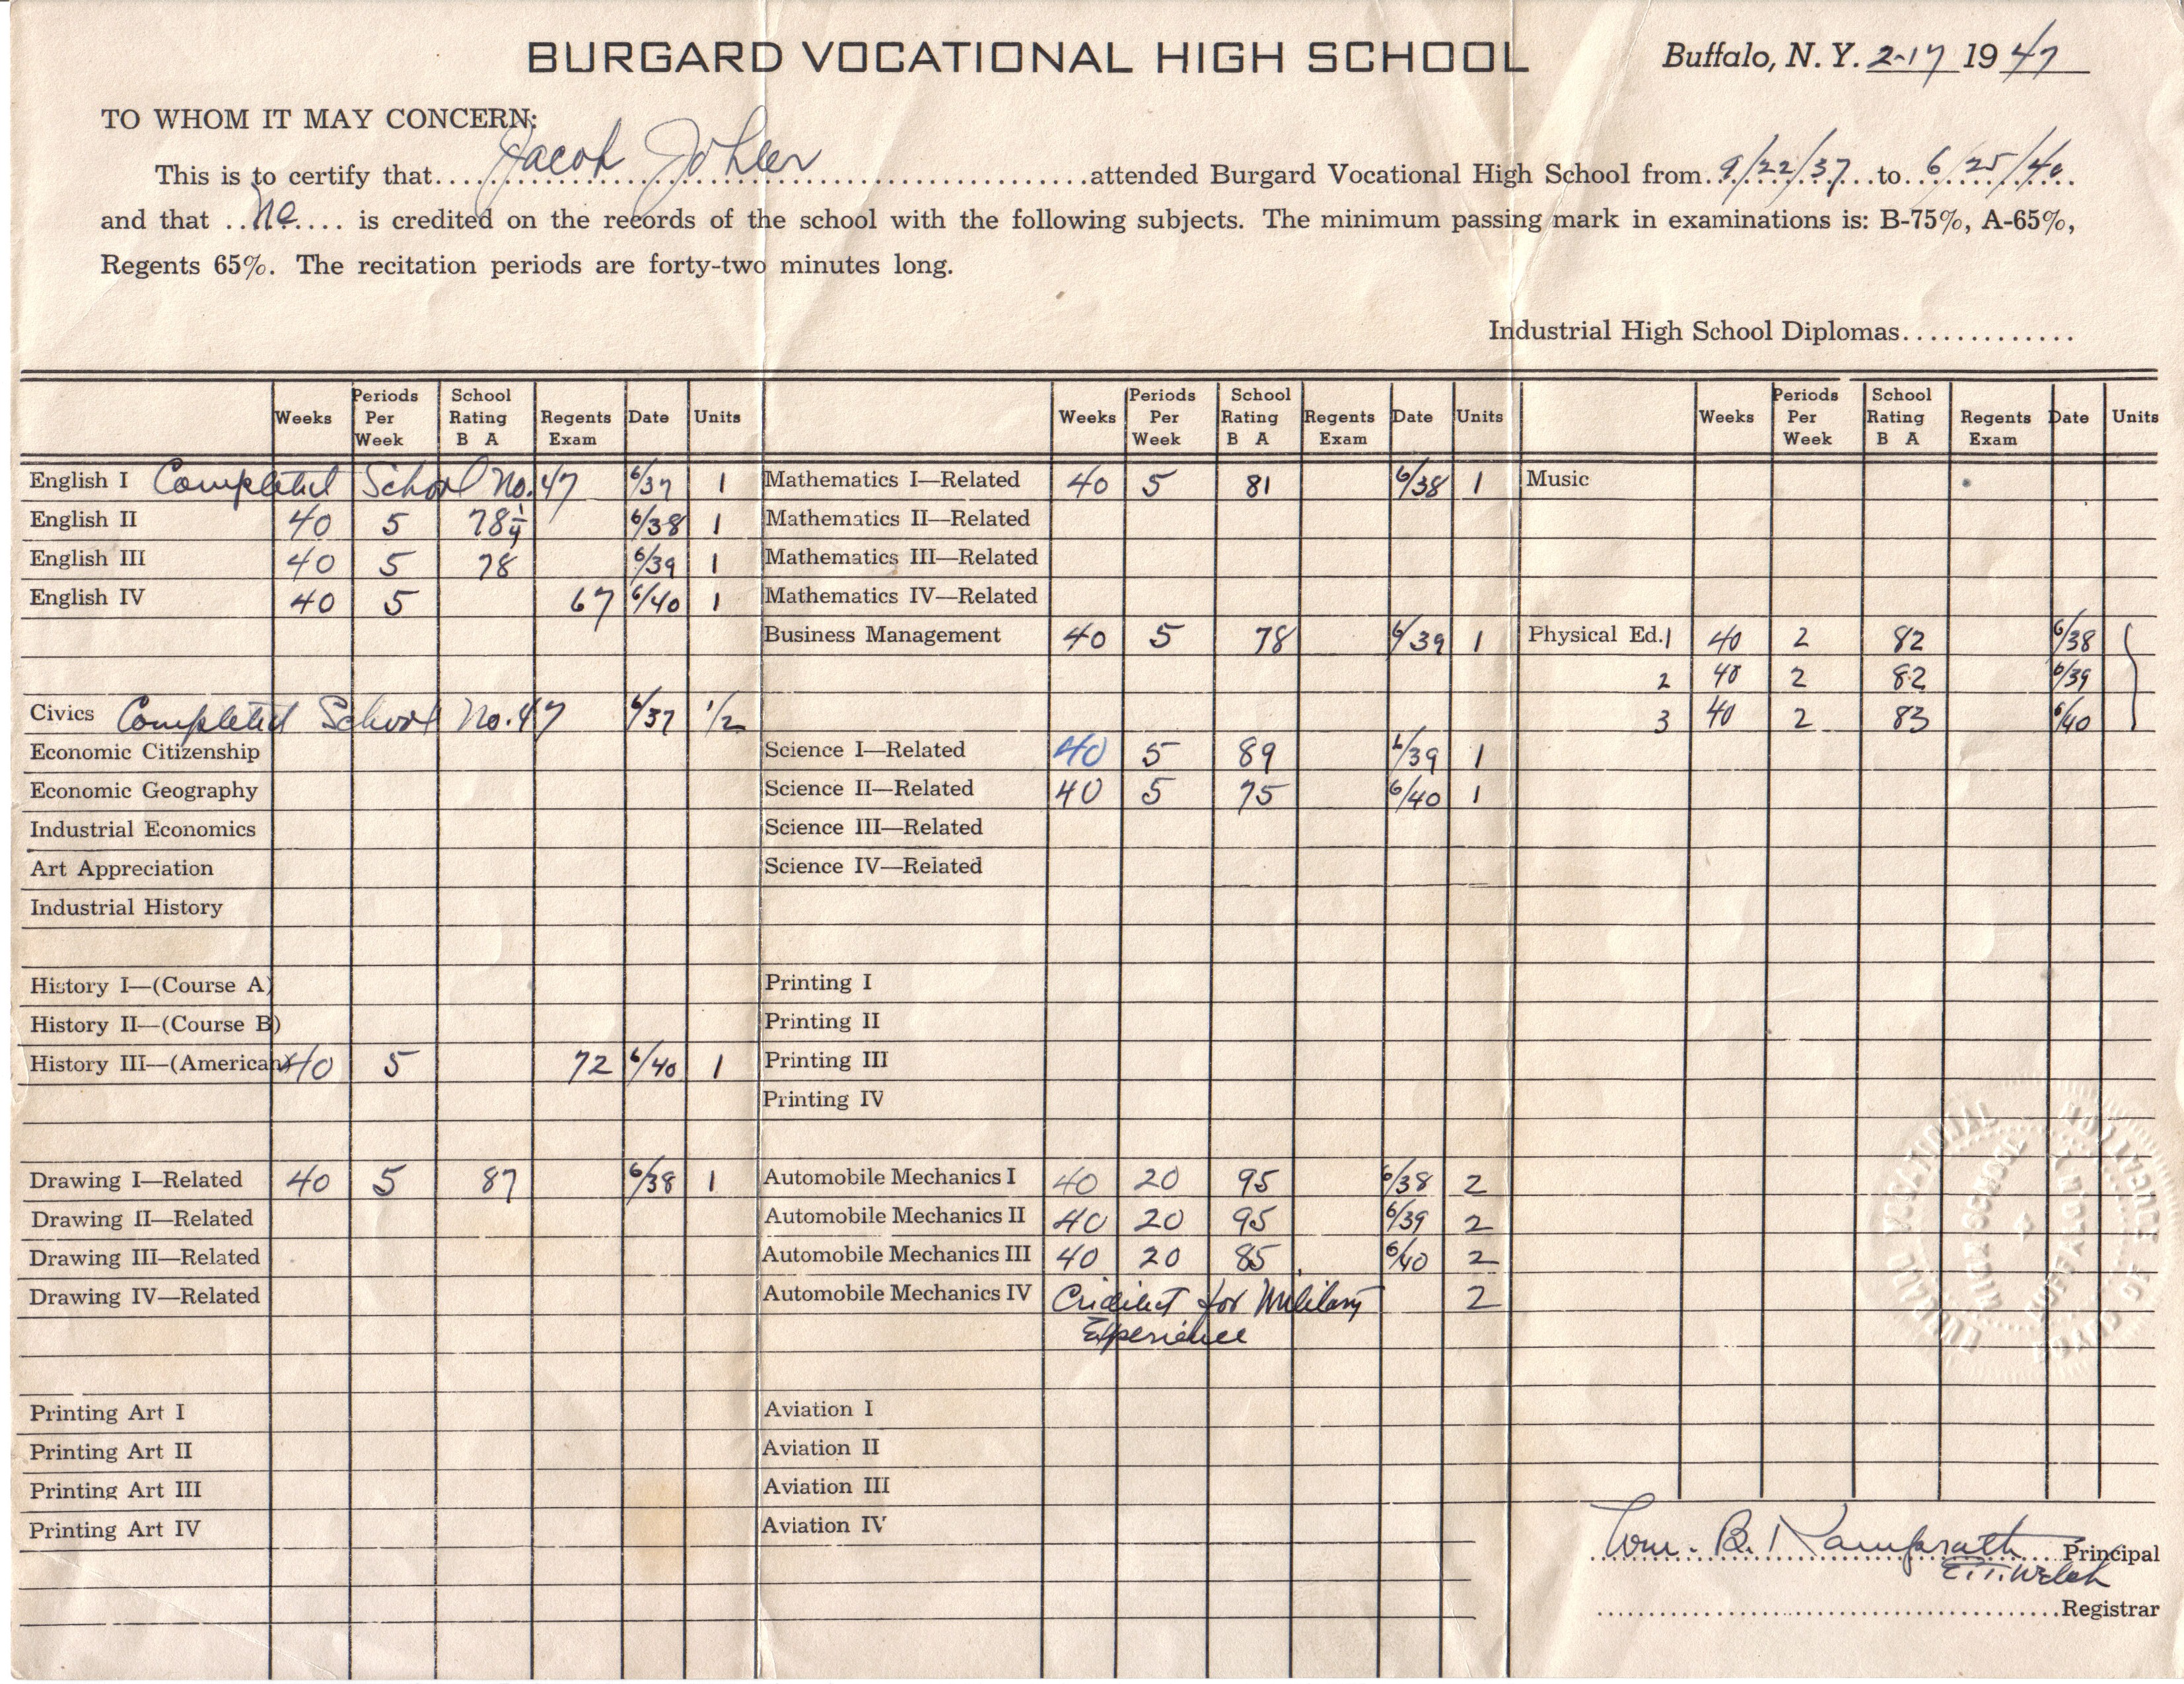 BURGARD VOCATIONAL HIGH SCHOOL Buffalo, N. Y. 2-17 1947
TO WHOM IT MAY CONCERN:
This is to certify that Jacob Johler attended Burgard Vocational High School from 9/22/37 to 6/25/40
and that he is credited on the records of the school with the following subjects. The minimum passing mark in examinations is: B-75%, A-65%,
Regents 65%. The recitation periods are forty-two minutes long.
Industrial High School Diplomas
Weeks Periods Per Week School Rating B A Regents Exam Date Units Weeks Periods Per Week School Rating B A Regents Exam Date Units Weeks Periods Per Week School Rating B A Regents Exam Date Units
English I Completed School No. 47 6/37 1 Mathematics I—Related 40 5 81 6/38 1 Music
English II 40 5 78 1/4 6/38 1 Mathematics II—Related
English III 40 5 78 6/39 1 Mathematics III—Related
English IV 40 5 67 6/40 1 Mathematics IV—Related
Business Management 40 5 78 6/39 1 Physical Ed. 1 40 2 82 6/38
2 40 2 82 6/39
Civics Completed School No. 47 6/37 1/2 3 40 2 83 6/40
Economic Citizenship Science I—Related 40 5 89 6/39 1
Economic Geography Science II—Related 40 5 75 6/40 1
Industrial Economics Science III—Related
Art Appreciation Science IV—Related
Industrial History
History I—(Course A) Printing I
History II—(Course B) Printing II
History III—(American) 40 5 72 6/40 1 Printing III
Printing IV
Drawing I—Related 40 5 87 6/38 1 Automobile Mechanics I 40 20 95 6/38 2
Drawing II—Related Automobile Mechanics II 40 20 95 6/39 2
Drawing III—Related Automobile Mechanics III 40 20 85 6/40 2
Drawing IV—Related Automobile Mechanics IV for Military 2
Experience
Printing Art I Aviation I
Printing Art II Aviation II
Printing Art III Aviation III
Printing Art IV Aviation IV
Wm. B. Kamprath Principal
E. T. Welch
Registrar
BURGARD VOCATIONAL HIGH SCHOOL
BUFFALO, N.Y.